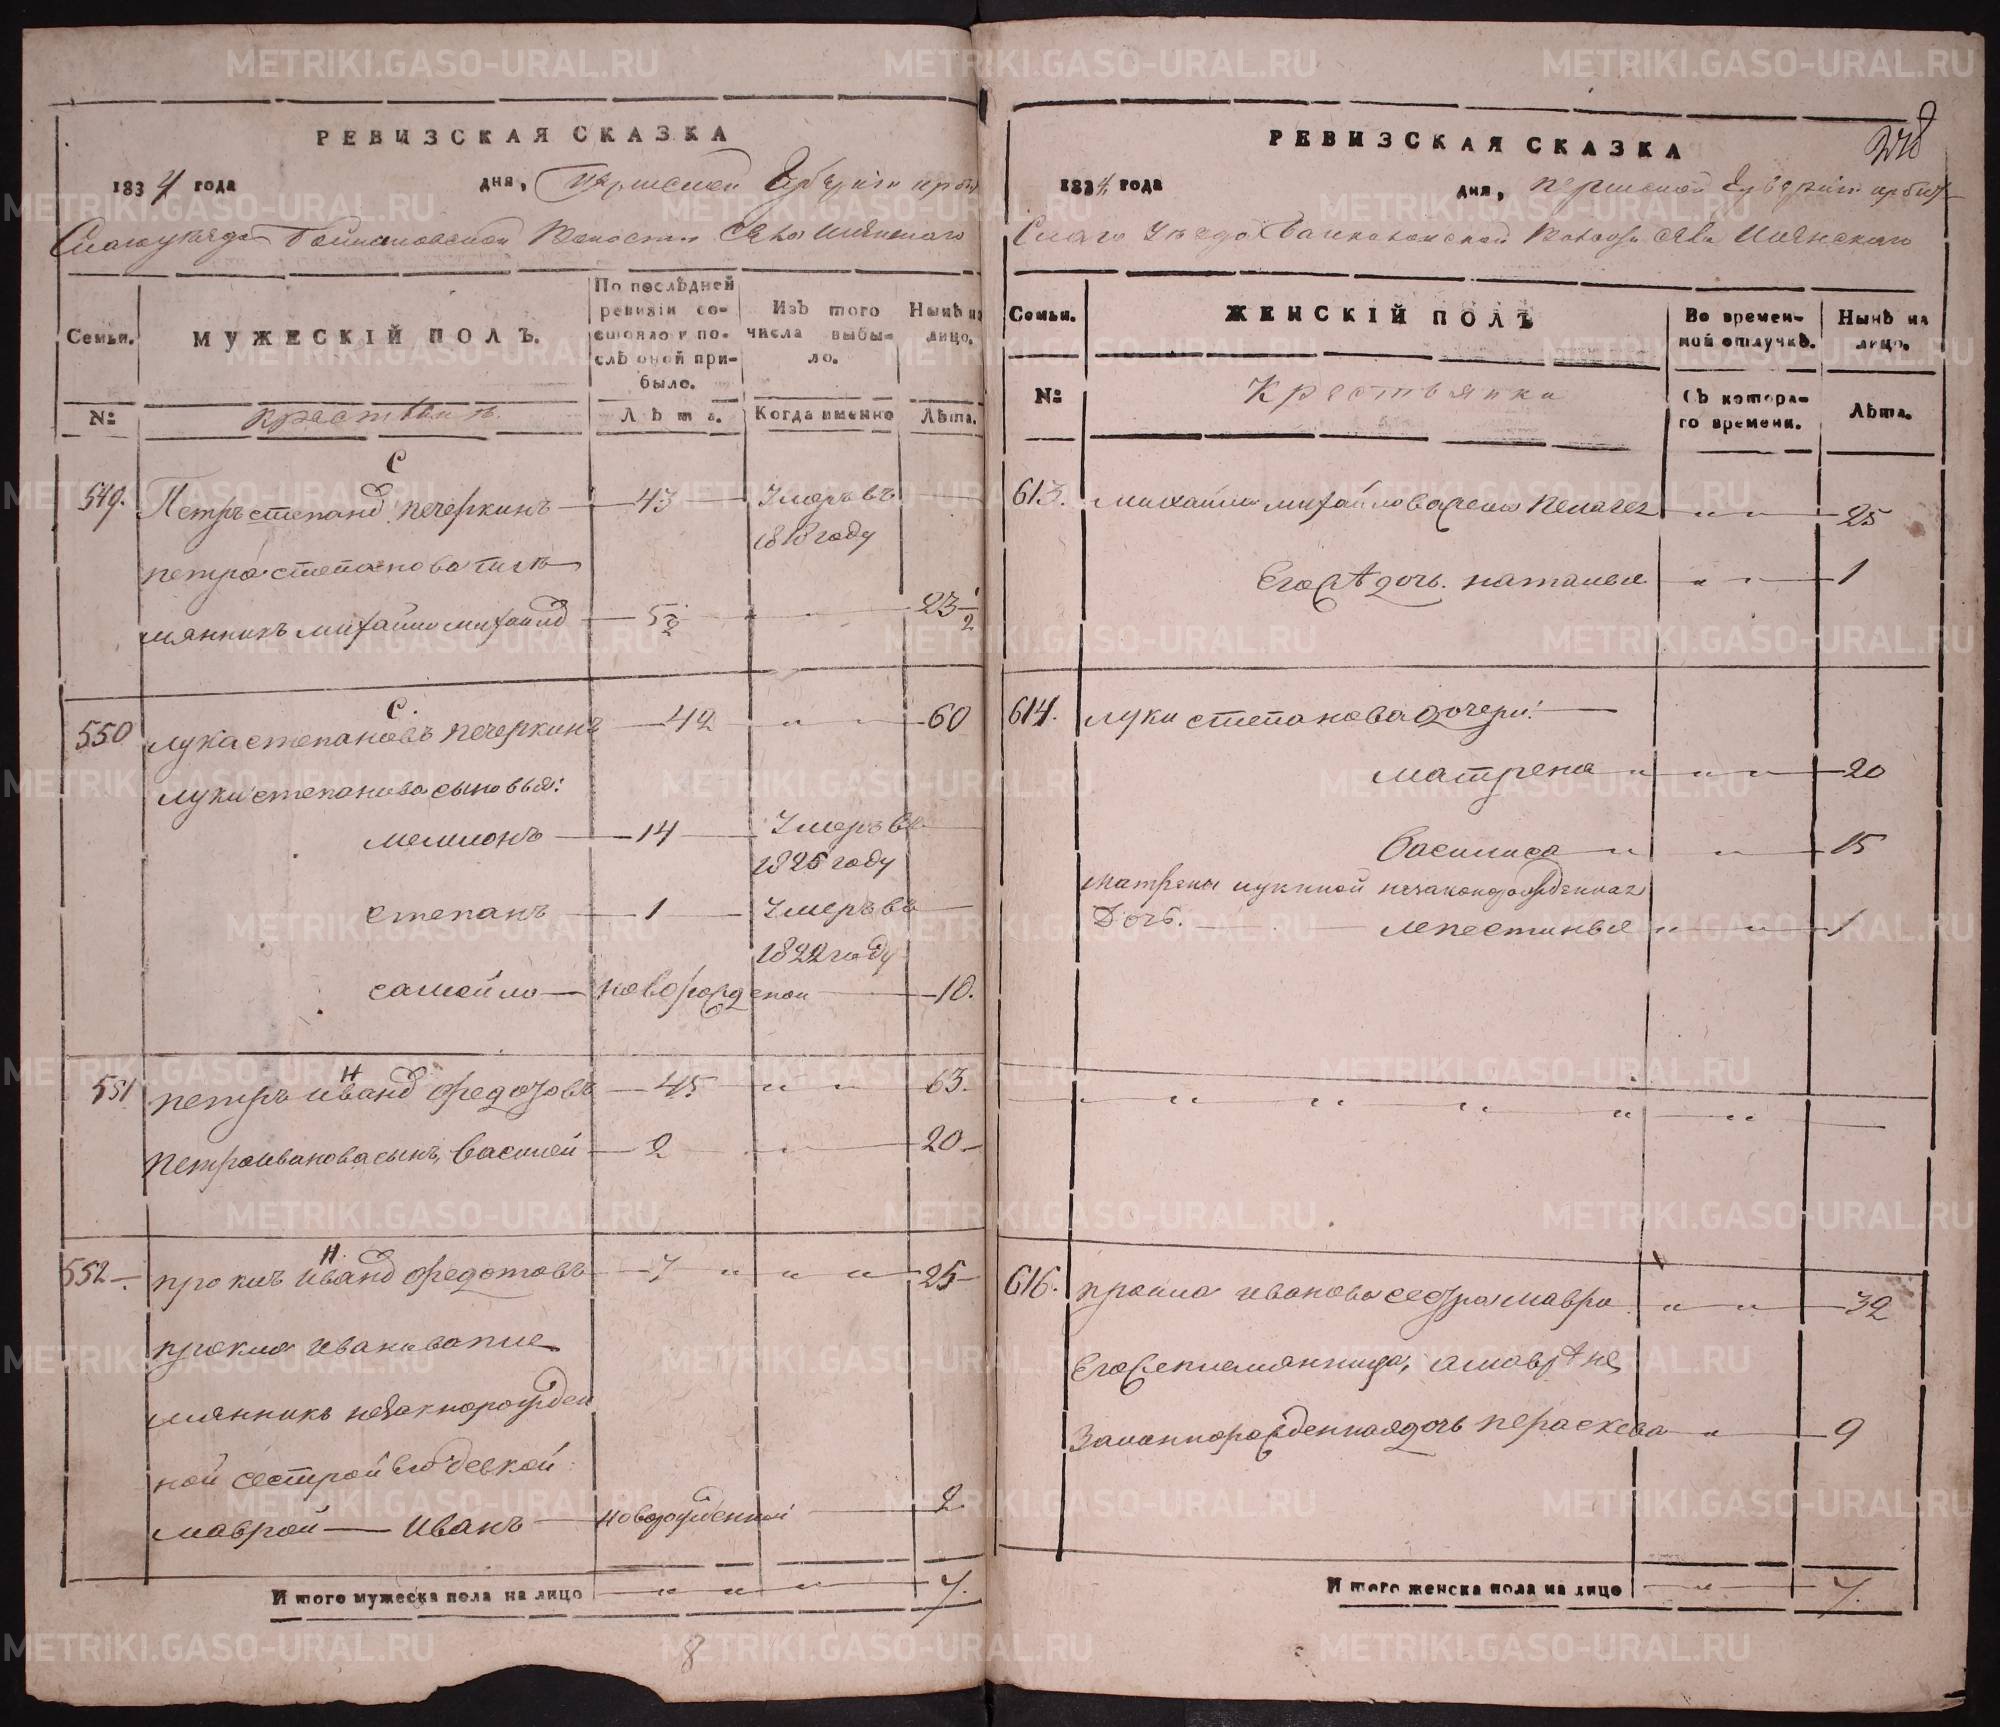 РЕВИЗСКАЯ СКАЗКА
1834 года дня, Пермской Губернiи ирбит
Скаго уезда Волости Села
Семьи. МУЖЕСКIЙ ПОЛЪ. По послѣдней ревизiи состояло и послѣ оной прибыло. Изъ того числа выбыло. Нынѣ на лицо.
№ крестьянъ Лѣта. Когда именно Лѣта.
С
549. Петръ степановъ печеркинъ 43 Умеръ въ
1818 году
петра степанова пле
мянникъ михайло михайловъ 5 1/2 23 1/2
С.
550 лука степановъ печеркинъ 42 60
луки степанова сыновья:
14 Умеръ въ
1825 году
степанъ 1 Умеръ въ
1822 году
самойло новорожденой 10.
Н
551 петръ ивановъ федотовъ 45 63.
петра иванова сынъ василей 2 20
Н.
552 проклъ ивановъ федотовъ 7 25
прокла иванова пле
мянникъ незакнорожден
ной сестрой ево девкой
маврой Иванъ новорожденной 2
Итого мужеска пола на лицо 7.
8
РЕВИЗСКАЯ СКАЗКА
248
1834 года дня, пермской Губернiи ирбит
Скаго Уезда Волости села
Семьи. ЖЕНСКIЙ ПОЛЪ Во временной отлучкѣ. Нынѣ на лицо.
№ Крестьянки Съ котораго времени. Лѣта.
613. михайла михайлова жена пелагея 25
Его дочь наталья 1
614. луки степанова дочери:
матрена 20
Василиса 15
матрены лукиной незаконорожденная
Дочь. 1
616. прокла иванова сестра мавра 32
Его же племянница, а мавры не
законнорожденная дочь пераскева 9
Итого женска пола на лицо 7.
METRIKI.GASO-URAL.RU